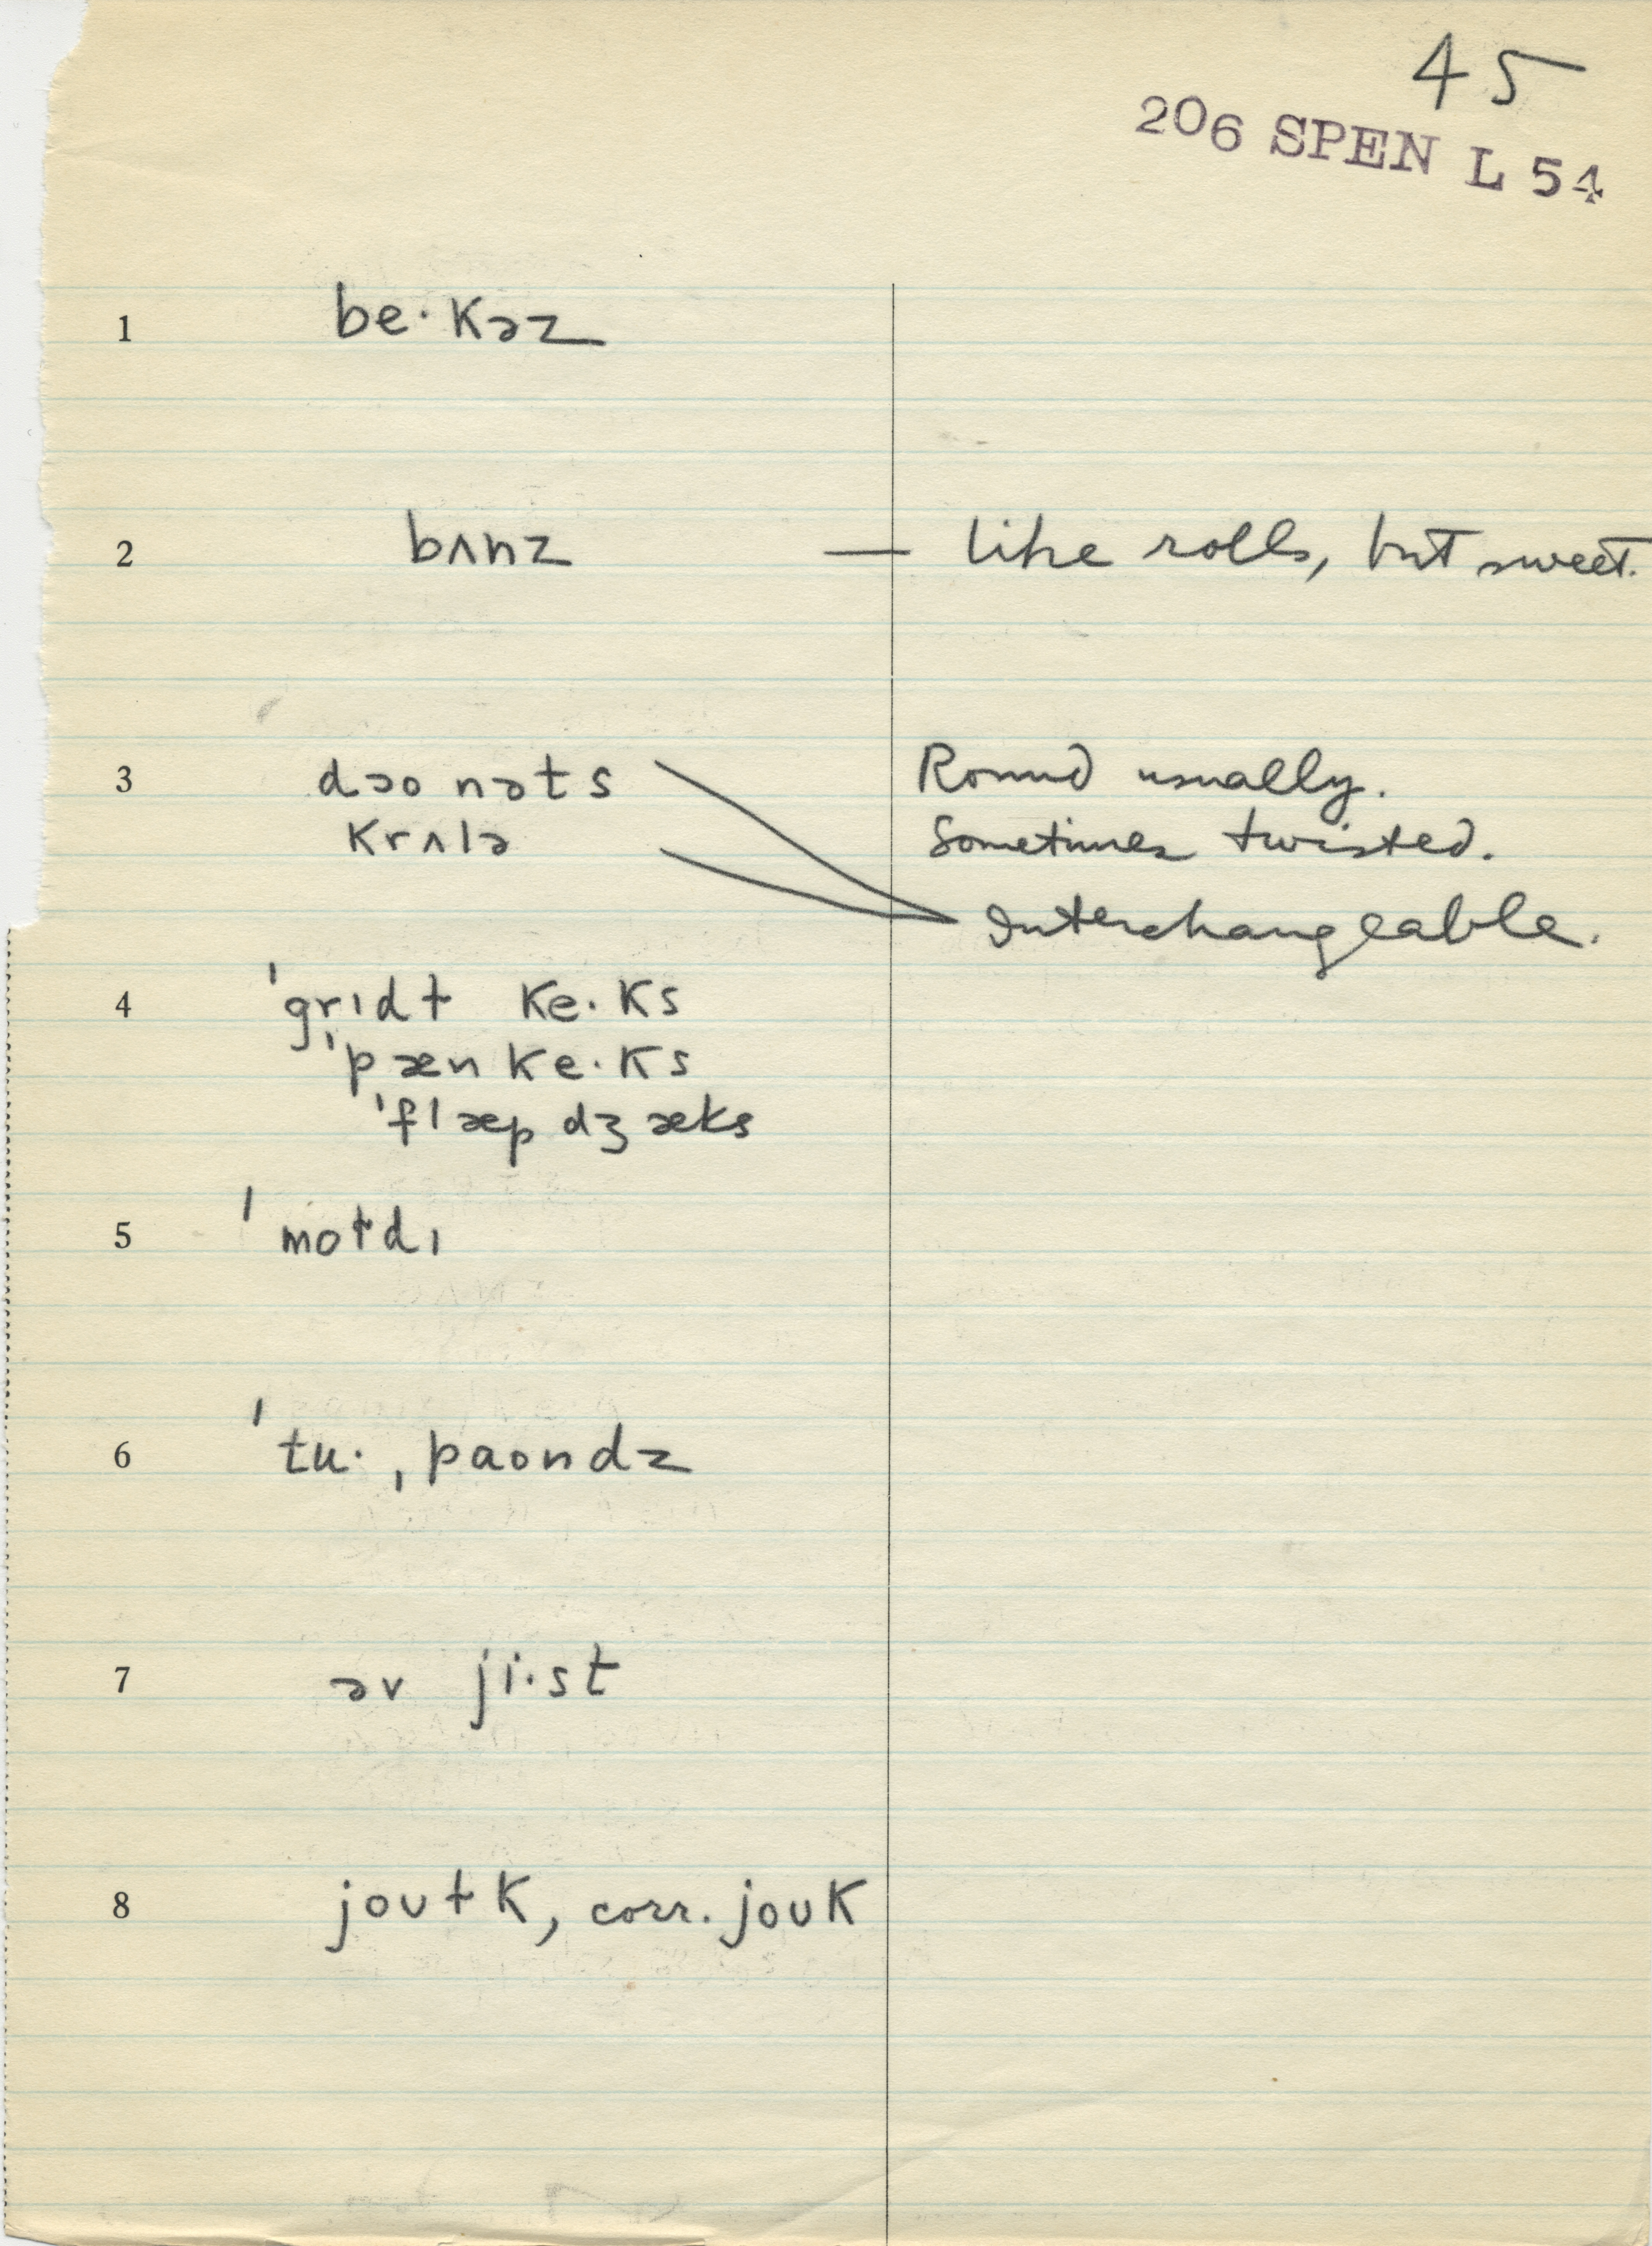 45
206 SPEN L 54
1 be·kəz
2 bʌnz — like rolls, but sweet.
3 dəo nəts Round usually.
krʌlə Sometimes twisted.
Interchangeable.
4 ˈgrɪdɫ ke·ks
ˈpæn ke·ks
ˈflæp dʒæks
5 ˈmoɫdɪ
6 ˈtu· ˌpaondz
7 əv ji·st
8 joʊɫk, corr. joʊk